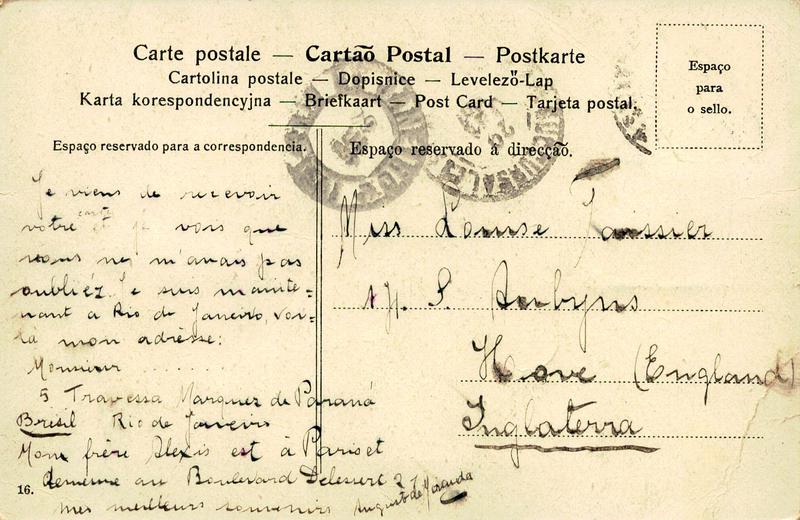 Carte postale — Cartão Postal — Postkarte
Cartolina postale — Dopisnice — Levelező-Lap
Karta korespondencyjna — Briefkaart — Post Card — Tarjeta postal.
Espaço
para
o sello.
Espaço reservado para a correspondencia.
Espaço reservado á direcção.
Je viens de recevoir
votre carte et je vois que
vous ne m'avais pas
oubliéz. Je suis mainte=
nant a Rio de Janeiro, voi=
là mon adrèsse:
Monsieur ........
5 Travessa Marquez de Paraná
Brésil Rio de Janeiro
Mon frère Alexis est à Paris et
demeure au Boulevard Delessert 27
mes meilleurs souvenirs Augusto de Miranda
16.
Miss Louise Taissier
17. S. Aubyns
Hove (England)
Inglaterra